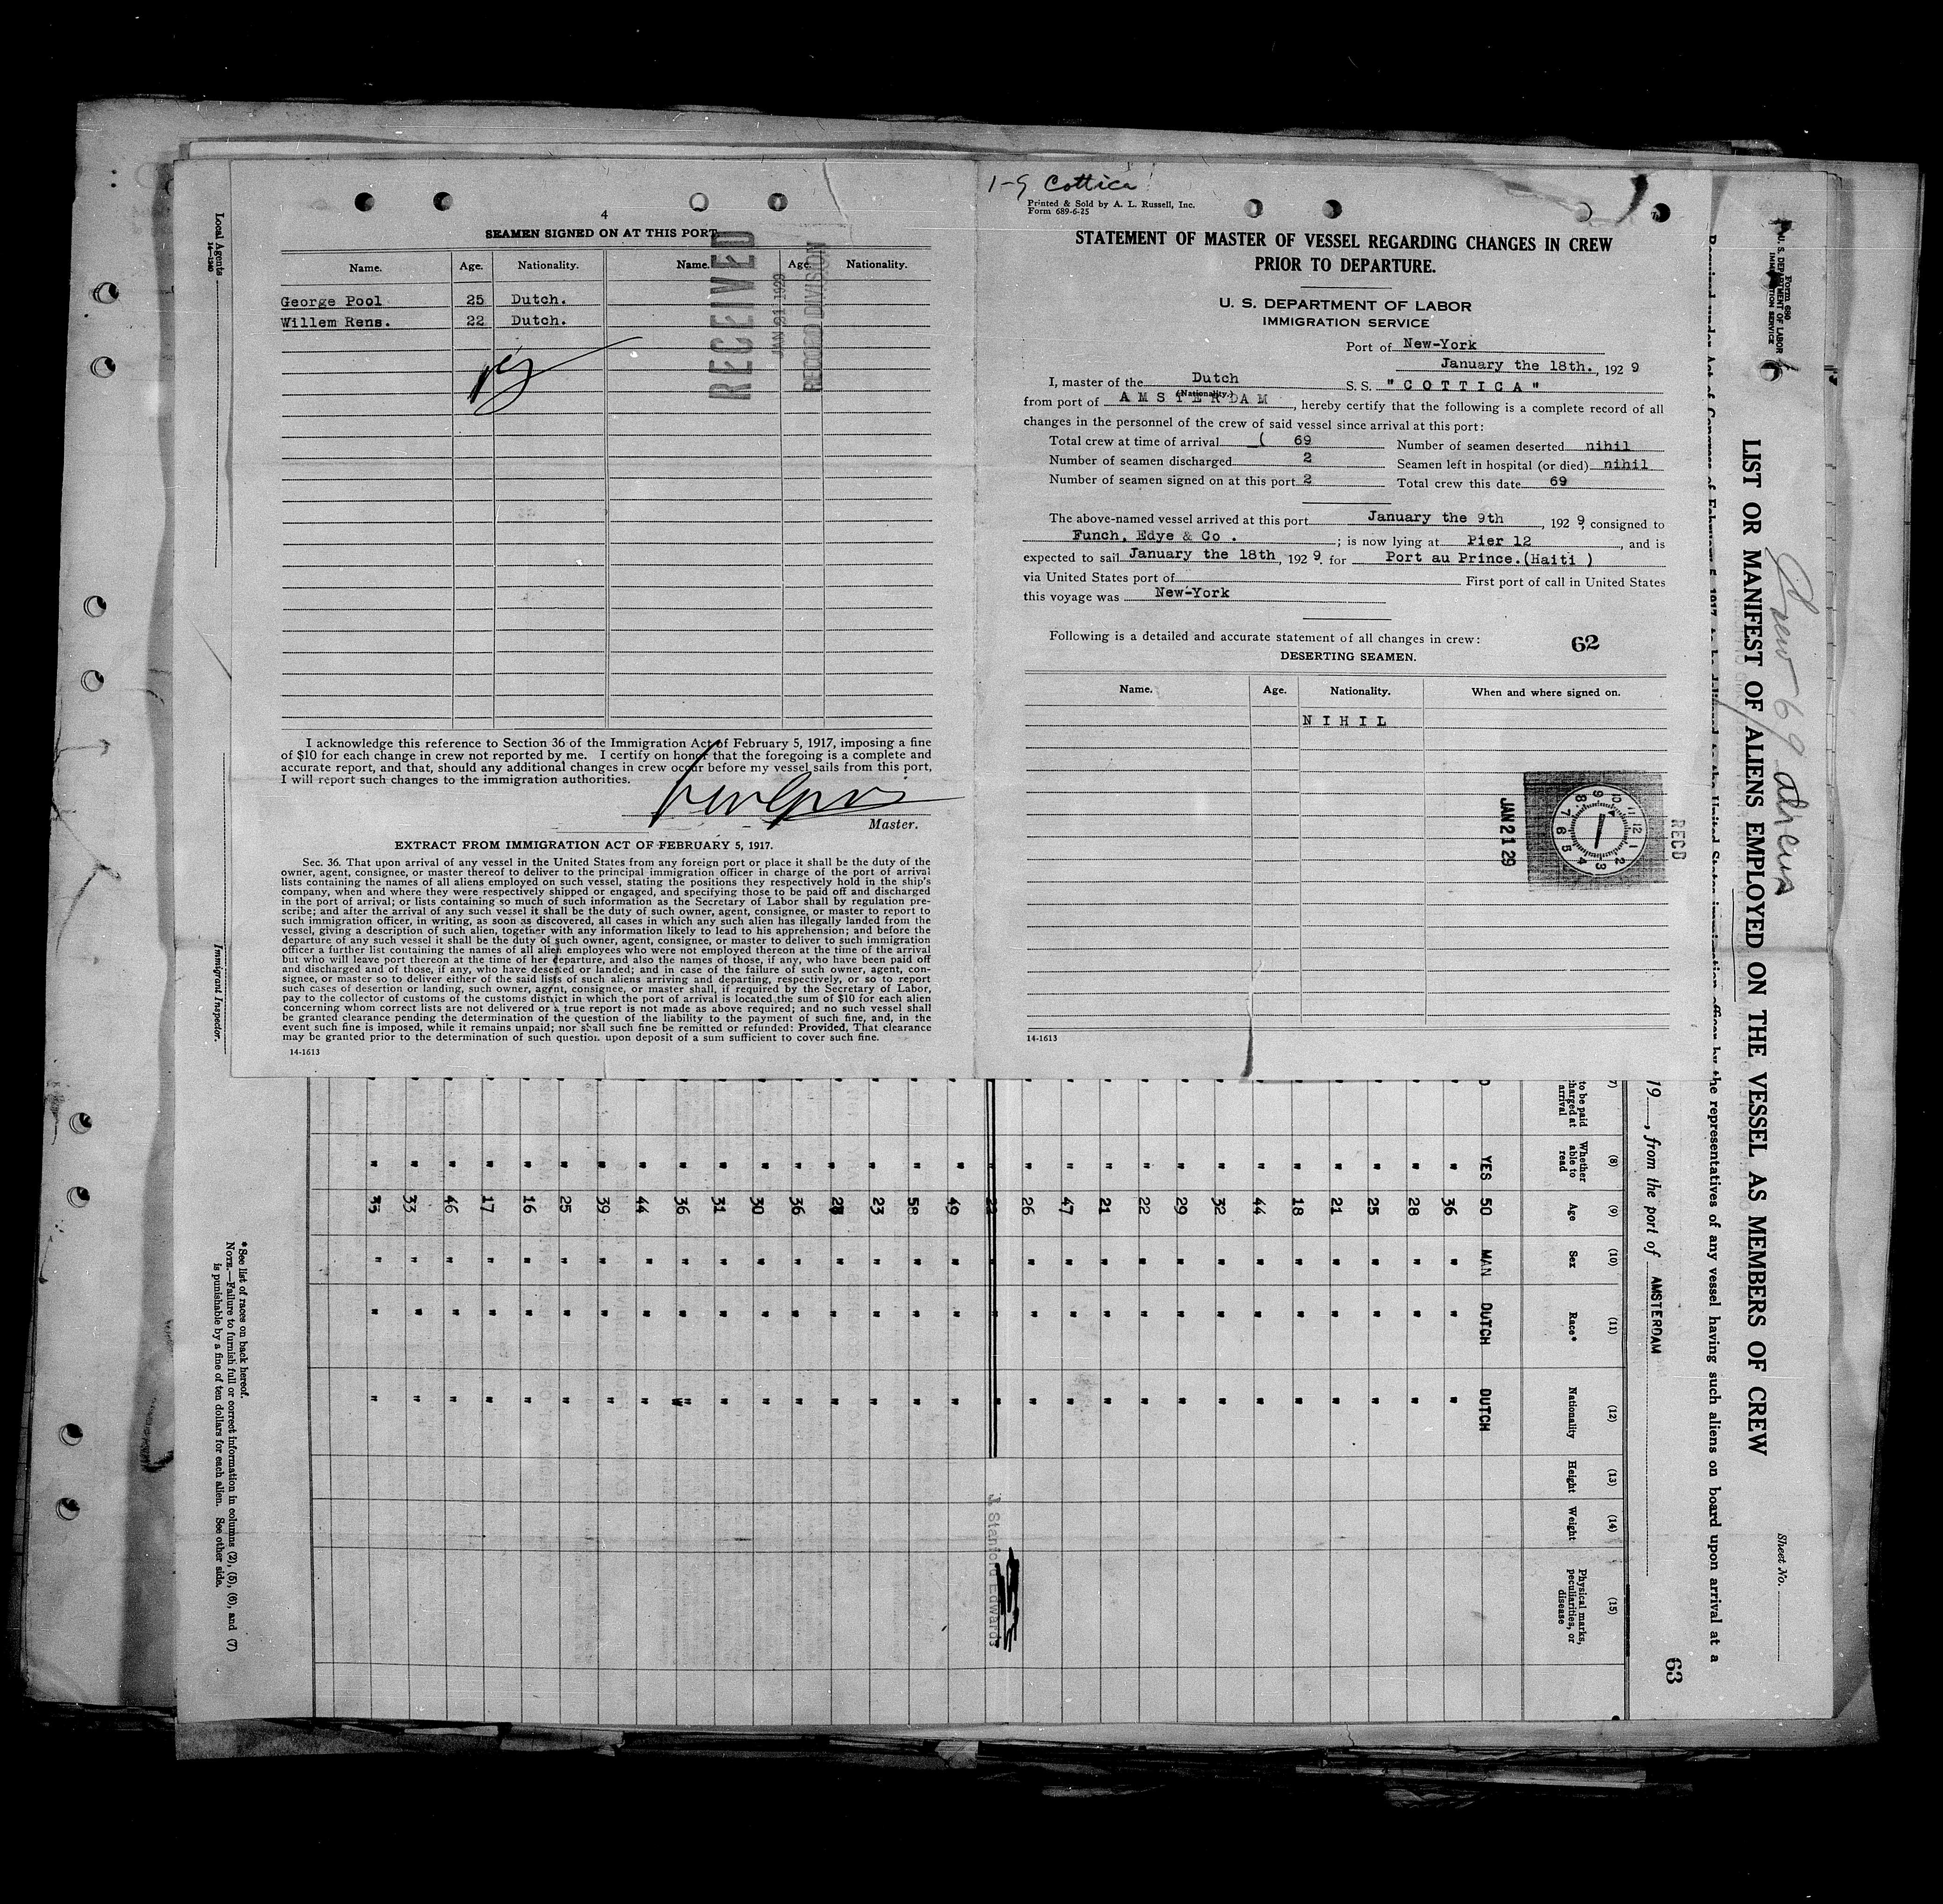 4
SEAMEN SIGNED ON AT THIS PORT
Name. Age. Nationality. Name. Age. Nationality.
George Pool 25 Dutch.
Willem Rens. 22 Dutch.
RECEIVED
JAN 21 1929
RECORD DIVISION
I acknowledge this reference to Section 36 of the Immigration Act of February 5, 1917, imposing a fine
of $10 for each change in crew not reported by me. I certify on honor that the foregoing is a complete and
accurate report, and that, should any additional changes in crew occur before my vessel sails from this port,
I will report such changes to the immigration authorities.
Master.
EXTRACT FROM IMMIGRATION ACT OF FEBRUARY 5, 1917.
Sec. 36. That upon arrival of any vessel in the United States from any foreign port or place it shall be the duty of the
owner, agent, consignee, or master thereof to deliver to the principal immigration officer in charge of the port of arrival
lists containing the names of all aliens employed on such vessel, stating the positions they respectively hold in the ship's
company, when and where they were respectively shipped or engaged, and specifying those to be paid off and discharged
in the port of arrival; or lists containing so much of such information as the Secretary of Labor shall by regulation pre-
scribe; and after the arrival of any such vessel it shall be the duty of such owner, agent, consignee, or master to report to
such immigration officer, in writing, as soon as discovered, all cases in which any such alien has illegally landed from the
vessel, giving a description of such alien, together with any information likely to lead to his apprehension; and before the
departure of any such vessel it shall be the duty of such owner, agent, consignee, or master to deliver to such immigration
officer a further list containing the names of all alien employees who were not employed thereon at the time of the arrival
but who will leave port thereon at the time of her departure, and also the names of those, if any, who have been paid off
and discharged and of those, if any, who have deserted or landed; and in case of the failure of such owner, agent, con-
signee, or master so to deliver either of the said lists of such aliens arriving and departing, respectively, or so to report
such cases of desertion or landing, such owner, agent, consignee, or master shall, if required by the Secretary of Labor,
pay to the collector of customs of the customs district in which the port of arrival is located the sum of $10 for each alien
concerning whom correct lists are not delivered or a true report is not made as above required; and no such vessel shall
be granted clearance pending the determination of the question of the liability to the payment of such fine, and, in the
event such fine is imposed, while it remains unpaid; nor shall such fine be remitted or refunded: Provided, That clearance
may be granted prior to the determination of such question upon deposit of a sum sufficient to cover such fine.
14-1613
1-9 Cottica
Printed & Sold by A. L. Russell, Inc.
Form 689-6-25
STATEMENT OF MASTER OF VESSEL REGARDING CHANGES IN CREW
PRIOR TO DEPARTURE.
U. S. DEPARTMENT OF LABOR
IMMIGRATION SERVICE
Port of New-York
January the 18th., 1929
I, master of the Dutch S. S. "COTTICA"
(Nationality.)
from port of AMSTERDAM, hereby certify that the following is a complete record of all
changes in the personnel of the crew of said vessel since arrival at this port:
Total crew at time of arrival ( 69 Number of seamen deserted nihil
Number of seamen discharged 2 Seamen left in hospital (or died) nihil
Number of seamen signed on at this port 2 Total crew this date 69
The above-named vessel arrived at this port January the 9th, 1929, consigned to
Funch, Edye & Co. ; is now lying at Pier 12, and is
expected to sail January the 18th, 1929. for Port au Prince.(Haiti )
via United States port of First port of call in United States
this voyage was New-York
Following is a detailed and accurate statement of all changes in crew: 62
DESERTING SEAMEN.
Name. Age. Nationality. When and where signed on.
NIHIL
JAN 21 29
RECD
10 11 12 1 2 3 4 5 6 7 8 9
14-1613
Form 680
U. S. DEPARTMENT OF LABOR
IMMIGRATION SERVICE
Crew 69 aliens
Sheet No.
LIST OR MANIFEST OF ALIENS EMPLOYED ON THE VESSEL AS MEMBERS OF CREW
the representatives of any vessel having such aliens on board upon arrival at a
63
19 , from the port of AMSTERDAM
(7) (8) (9) (10) (11) (12) (13) (14) (15)
to be paid Whether able to read Age Sex Race* Nationality Height Weight Physical marks, peculiarities, or disease
arrival
YES 50 MAN DUTCH DUTCH
" 36 " " "
" 28 " " "
" 25 " " "
" 21 " " "
" 18 " " "
" 44 " " "
" 32 " " "
" 29 " " "
" 22 " " "
" 21 " " "
" 47 " " "
" 26 " " "
J. Stanford Edwards
" 49 " " "
" 58 " " "
" 23 " " "
" " " "
" 36 " " "
" 30 " " "
" 31 " " "
" 36 " " "
" 44 " " "
" 39 " " "
" 25 " " "
" 16 " " "
" 17 " " "
" 46 " " "
" 33 " " "
" 33 " " "
* See list of races on back hereof.
NOTE.—Failure to furnish full or correct information in columns (2), (5), (6), and (7)
is punishable by a fine of ten dollars for each alien. See other side.
Local Agents
14-1240
Immigrant Inspector.